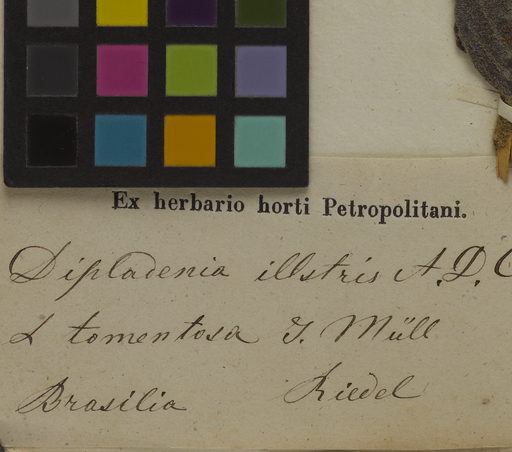 Ex herbario horti Petropolitani.
Dipladenia illstris A.D.C
α tomentosa J. Müll
Brasilia Riedel